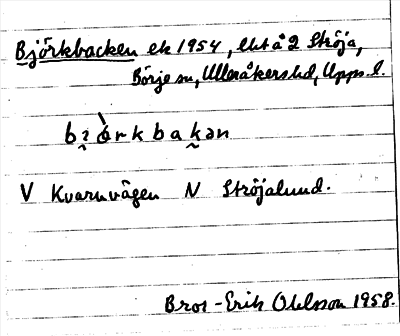 Björkbacken ek 1954, Utå 2 Ströja,
Börje sn, Ulleråkers hd, Upps. l.
bi̯òrkbak̯ən
V Kvarnvägen N Ströjalund.
Bror-Erik Ohlsson 1958.